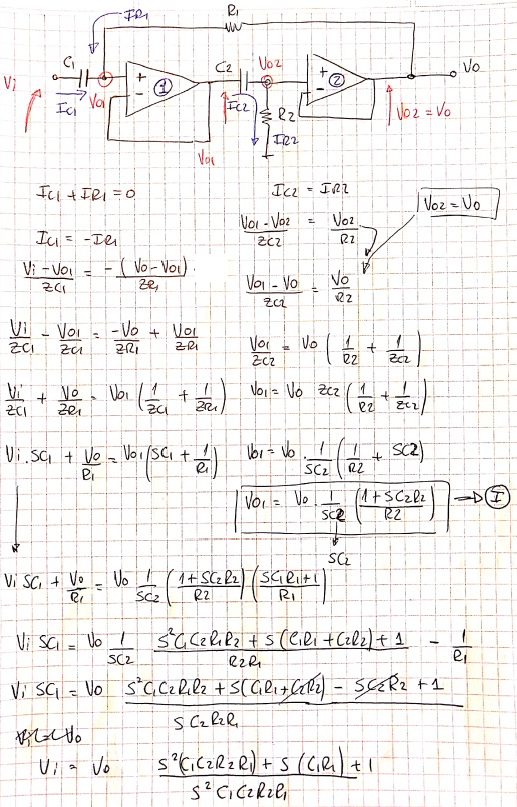 R1
IR1
C1
Vi
IC1
VO1
+
-
1
VO1
C2
IC2
VO2
R2
IR2
+
-
2
VO
VO2 = VO
IC1 + IR1 = 0
IC1 = -IR1
(Vi - VO1)/ZC1 = -(VO - VO1)/ZR1
Vi/ZC1 - VO1/ZC1 = -VO/ZR1 + VO1/ZR1
Vi/ZC1 + VO/ZR1 = VO1 (1/ZC1 + 1/ZR1)
Vi.SC1 + VO/R1 = VO1 (SC1 + 1/R1)
IC2 = IR2
(VO1 - VO2)/ZC2 = VO2/R2
VO2 = VO
(VO1 - VO)/ZC2 = VO/R2
VO1/ZC2 = VO (1/R2 + 1/ZC2)
VO1 = VO ZC2 (1/R2 + 1/ZC2)
VO1 = VO . 1/SC2 (1/R2 + SC2)
VO1 = VO . 1/SC2 ((1 + SC2R2)/R2) → I
SC2
Vi SC1 + VO/R1 = VO 1/SC2 ((1 + SC2R2)/R2) ((SC1R1 + 1)/R1)
Vi SC1 = VO 1/SC2 (S²C1C2R1R2 + S(C1R1 + C2R2) + 1)/R2R1 - 1/R1
Vi SC1 = VO (S²C1C2R1R2 + S(C1R1 + C2R2) - SC2R2 + 1)/SC2R2R1
Vi = VO (S²(C1C2R2R1) + S(C1R1) + 1)/S²C1C2R2R1